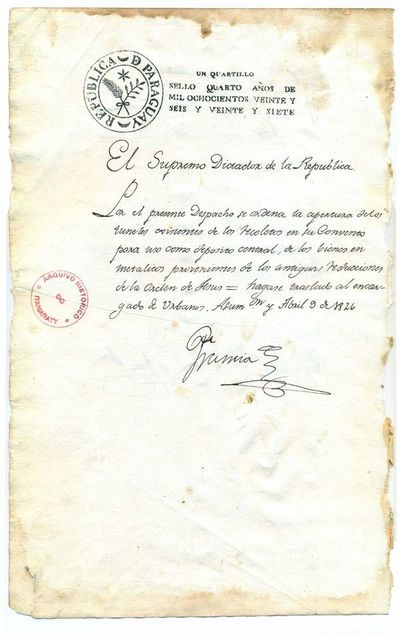 REPUBLICA D PARAGUAY
UN QUARTILLO
SELLO QUARTO AÑOS DE
MIL OCHOCIENTOS VEINTE Y
SEIS Y VEINTE Y SIETE
El Supremo Dictador de la Republica.
Por el presente Despacho se ordena la apertura de los
tuneles existentes de los Recoletos en su Convento
para uso como deposito general, de los bienes en
metalico provenientes de las antiguas Reducciones
de la Orden de Jesus = hagase traslado al encar-
gado de Urbanos. Asum.on y Abril 9 de 1826
Francia
ARQUIVO HISTÓRICO
ITAMARATY